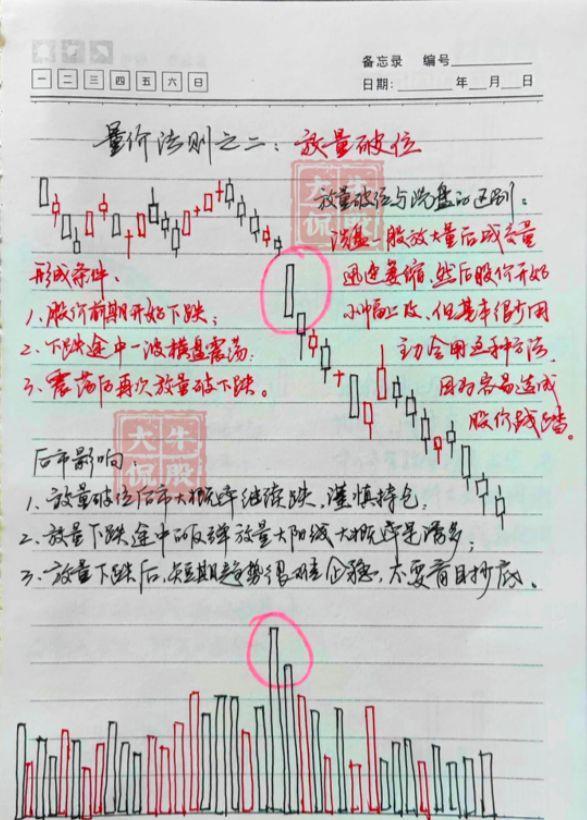 备忘录 编号
一 二 三 四 五 六 日
日期: 年 月 日
量价法则之二：放量破位
放量破位与洗盘的区别：
洗盘一般放大量后成交量
迅速萎缩，然后股价开始
小幅上攻，但基本很少用
主力会用这种方法，
因为容易造成
股价践踏。
形成条件：
1、股价前期开始下跌；
2、下跌途中一波横盘震荡；
3、震荡后再次放量破下跌。
大牛
侃股
大牛
侃股
后市影响：
1、放量破位后市大概率继续跌，谨慎持仓；
2、放量下跌途中的反弹放量大阳线大概率是诱多；
3、放量下跌后，短期趋势很难企稳，不要盲目抄底。